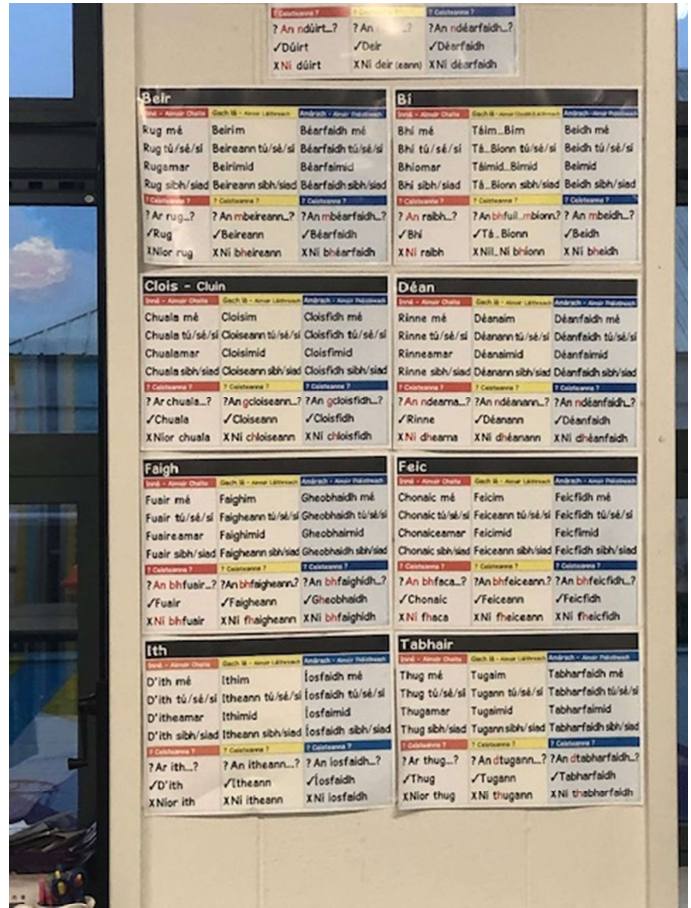 ? Ceisteanna ? ? Ceisteanna ? ? Ceisteanna ?
? An ndúirt...? ? An ...? ? An ndéarfaidh...?
✓Dúirt ✓Deir ✓Déarfaidh
XNí dúirt XNí deir (eann) XNí déarfaidh
Beir
Inné - Aimsir Chaite Gach lá - Aimsir Láithreach Amárach - Aimsir Fháistineach
Rug mé Beirim Béarfaidh mé
Rug tú/sé/sí Beireann tú/sé/sí Béarfaidh tú/sé/sí
Rugamar Beirimid Béarfaimid
Rug sibh/siad Beireann sibh/siad Béarfaidh sibh/siad
? Ceisteanna ? ? Ceisteanna ? ? Ceisteanna ?
? Ar rug...? ? An mbeireann...? ? An mbéarfaidh...?
✓Rug ✓Beireann ✓Béarfaidh
XNíor rug XNí bheireann XNí bhéarfaidh
Bí
Inné - Aimsir Chaite Gach lá - Aimsir Amárach - Aimsir Fháistineach
Bhí mé Táim...Bím Beidh mé
Bhí tú/sé/sí Tá...Bíonn tú/sé/sí Beidh tú/sé/sí
Bhíomar Táimid...Bímid Beimid
Bhí sibh/siad Tá...Bíonn sibh/siad Beidh sibh/siad
? Ceisteanna ? ? Ceisteanna ? ? Ceisteanna ?
? An raibh...? ? An bhfuil...mbíonn? ? An mbeidh...?
✓Bhí ✓Tá...Bíonn ✓Beidh
XNí raibh XNíl...Ní bhíonn XNí bheidh
Clois - Cluin
Inné - Aimsir Chaite Gach lá - Aimsir Láithreach Amárach - Aimsir Fháistineach
Chuala mé Cloisim Cloisfidh mé
Chuala tú/sé/sí Cloiseann tú/sé/sí Cloisfidh tú/sé/sí
Chualamar Cloisimid Cloisfimid
Chuala sibh/siad Cloiseann sibh/siad Cloisfidh sibh/siad
? Ceisteanna ? ? Ceisteanna ? ? Ceisteanna ?
? Ar chuala...? ?An gcloiseann...? ?An gcloisfidh...?
✓Chuala ✓Cloiseann ✓Cloisfidh
XNíor chuala XNí chloiseann XNí chloisfidh
Déan
Inné - Aimsir Chaite Gach lá - Aimsir Láithreach Amárach - Aimsir Fháistineach
Rinne mé Déanaim Déanfaidh mé
Rinne tú/sé/sí Déanann tú/sé/sí Déanfaidh tú/sé/sí
Rinneamar Déanaimid Déanfaimid
Rinne sibh/siad Déanann sibh/siad Déanfaidh sibh/siad
? Ceisteanna ? ? Ceisteanna ? ? Ceisteanna ?
? An ndearna...? ?An ndéanann...? ?An ndéanfaidh...?
✓Rinne ✓Déanann ✓Déanfaidh
XNí dhearna XNí dhéanann XNí dhéanfaidh
Faigh
Inné - Aimsir Chaite Gach lá - Aimsir Láithreach Amárach - Aimsir Fháistineach
Fuair mé Faighim Gheobhaidh mé
Fuair tú/sé/sí Faigheann tú/sé/sí Gheobhaidh tú/sé/sí
Fuaireamar Faighimid Gheobhaimid
Fuair sibh/siad Faigheann sibh/siad Gheobhaidh sibh/siad
? Ceisteanna ? ? Ceisteanna ? ? Ceisteanna ?
? An bhfuair...? ?An bhfaigheann...? ?An bhfaighidh...?
✓Fuair ✓Faigheann ✓Gheobhaidh
XNí bhfuair XNí fhaigheann XNí bhfaighidh
Feic
Inné - Aimsir Chaite Gach lá - Aimsir Láithreach Amárach - Aimsir Fháistineach
Chonaic mé Feicim Feicfidh mé
Chonaic tú/sé/sí Feiceann tú/sé/sí Feicfidh tú/sé/sí
Chonaiceamar Feicimid Feicfimid
Chonaic sibh/siad Feiceann sibh/siad Feicfidh sibh/siad
? Ceisteanna ? ? Ceisteanna ? ? Ceisteanna ?
? An bhfaca...? ?An bhfeiceann...? ?An bhfeicfidh...?
✓Chonaic ✓Feiceann ✓Feicfidh
XNí fhaca XNí fheiceann XNí fheicfidh
Ith
Inné - Aimsir Chaite Gach lá - Aimsir Láithreach Amárach - Aimsir Fháistineach
D'ith mé Ithim Íosfaidh mé
D'ith tú/sé/sí Itheann tú/sé/sí Íosfaidh tú/sé/sí
D'itheamar Ithimid Íosfaimid
D'ith sibh/siad Itheann sibh/siad Íosfaidh sibh/siad
? Ceisteanna ? ? Ceisteanna ? ? Ceisteanna ?
? Ar ith...? ? An itheann...? ? An íosfaidh...?
✓D'ith ✓Itheann ✓Íosfaidh
XNíor ith XNí itheann XNí íosfaidh
Tabhair
Inné - Aimsir Chaite Gach lá - Aimsir Láithreach Amárach - Aimsir Fháistineach
Thug mé Tugaim Tabharfaidh mé
Thug tú/sé/sí Tugann tú/sé/sí Tabharfaidh tú/sé/sí
Thugamar Tugaimid Tabharfaimid
Thug sibh/siad Tugann sibh/siad Tabharfaidh sibh/siad
? Ceisteanna ? ? Ceisteanna ? ? Ceisteanna ?
? Ar thug...? ? An dtugann...? ?An dtabharfaidh...?
✓Thug ✓Tugann ✓Tabharfaidh
XNíor thug XNí thugann XNí thabharfaidh